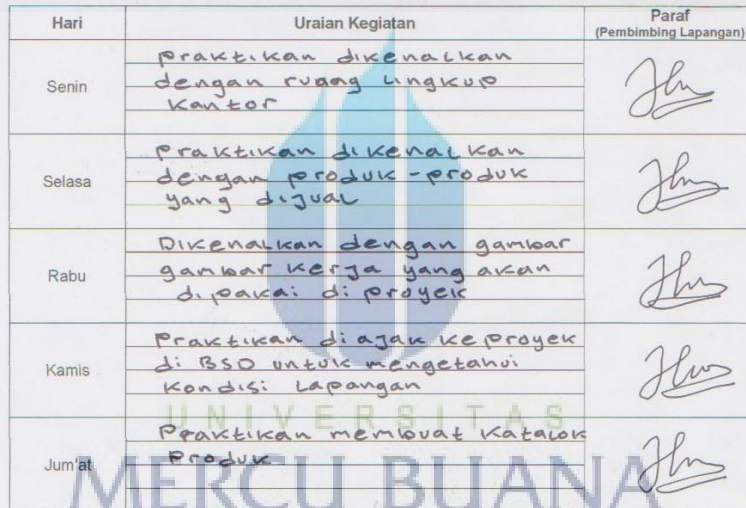 Hari Uraian Kegiatan Paraf
(Pembimbing Lapangan)
Senin
Praktikan dikenalkan
dengan ruang lingkup
kantor
Selasa
Praktikan dikenalkan
dengan produk-produk
yang dijual
Rabu
Dikenalkan dengan gambar
gambar kerja yang akan
dipakai di proyek
Kamis
Praktikan diajak keproyek
di BSD untuk mengetahui
kondisi lapangan
UNIVERSITAS
Jum'at
Praktikan membuat katalok
Produk
MERCU BUANA